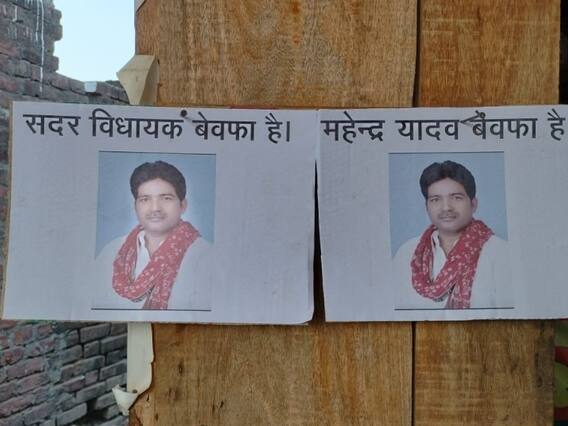 सदर विधायक बेवफा है।
महेन्द्र यादव बेवफा है